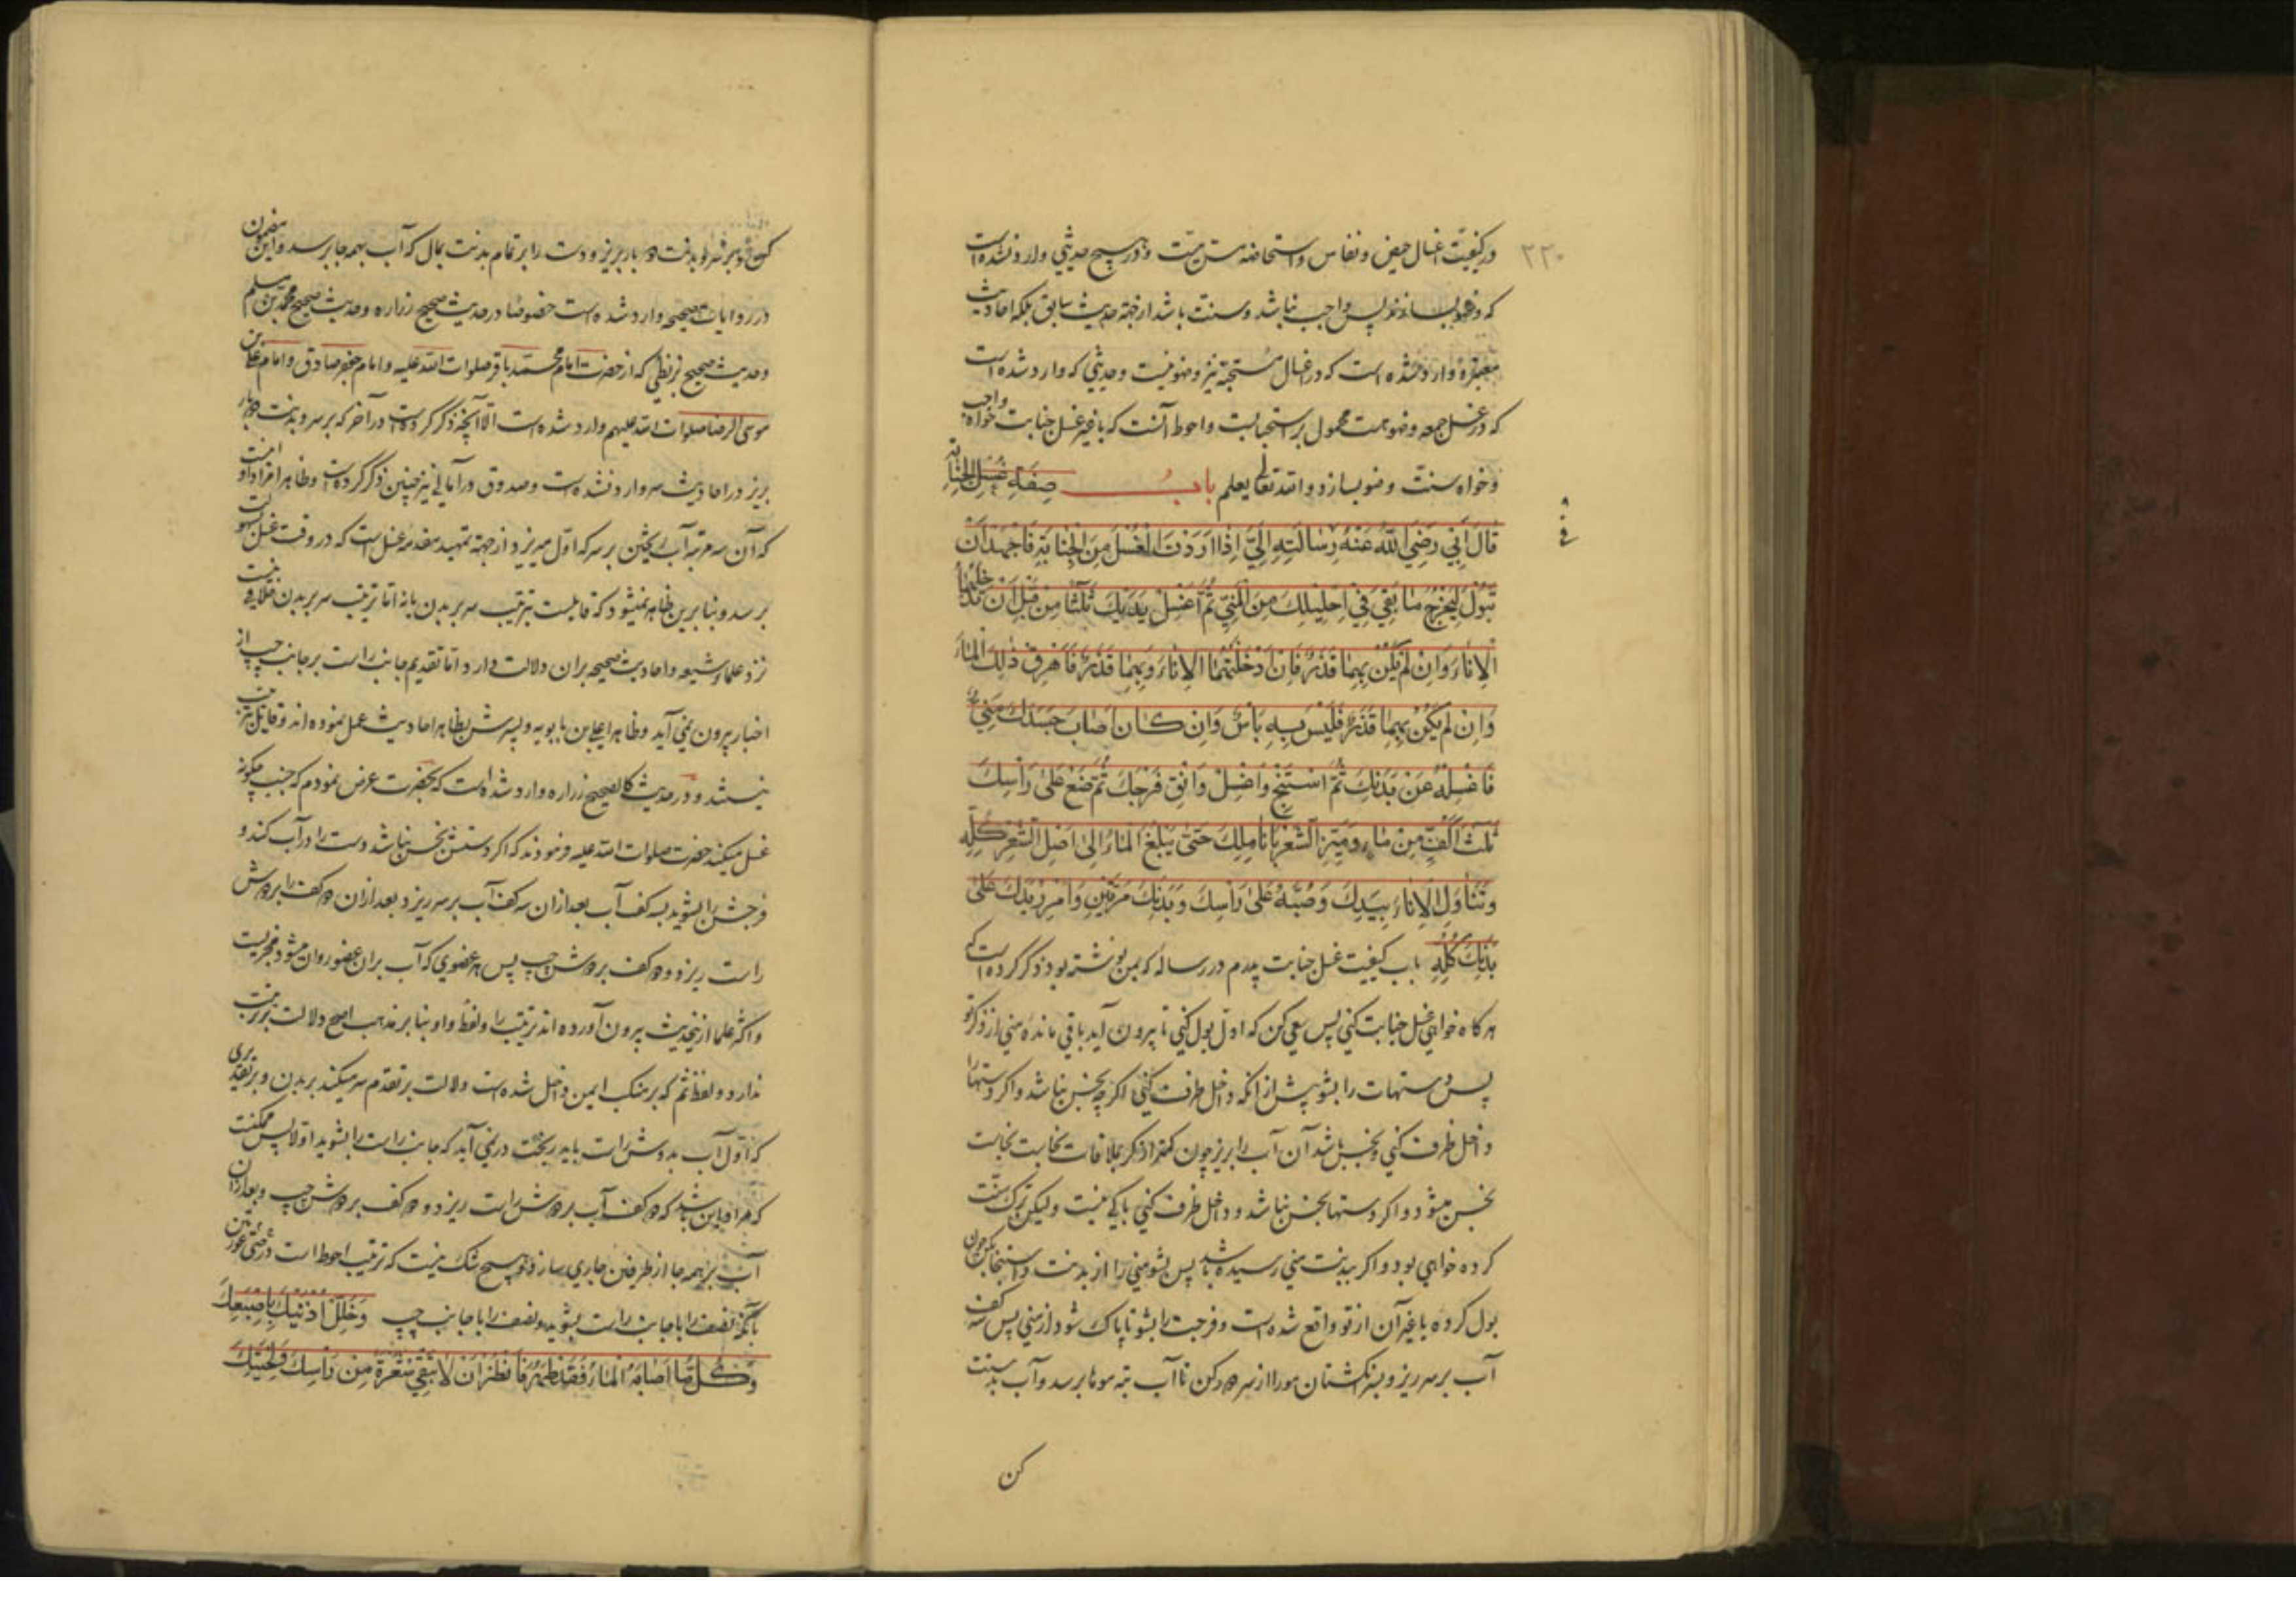 ۲۲۰
در کیفیت اغسال حیض و نفاس و استحاضه و مس میت و در هیچ حدیثی وارد نشده است
که وضو بسازند پس واجب نباشد و سنت باشد از جهة حدیث سابق بلکه احادیث
معتبره وارد شده است که در اغسال مستحبه نیز وضو نیست و حدیثی که وارد شده است
که در غسل جمعه وضو هست محمول بر استحبابست و احوط آنست که با غیر غسل جنابت خواه واجب
و خواه سنت وضو بسازد و الله تعالی یعلم باب صفة غسل الجنابة
قَالَ اَبِي رَضِيَ اللّٰهُ عَنْهُ فِي رِسَالَتِهِ اِلَيَّ اِذَا اَرَدْتَ الْغُسْلَ مِنَ الْجَنَابَةِ فَاجْهَدْ اَنْ
تَبُوْلَ لِيَخْرُجَ مَا بَقِيَ فِي اِحْلِيلِكَ مِنَ الْمَنِيِّ ثُمَّ اغْسِلْ يَدَيْكَ ثَلٰثًا مِنْ قَبْلِ اَنْ تُدْخِلَهُمَا
الْاِنَاءَ وَاِنْ لَمْ يَكُنْ بِهِمَا قَذَرٌ فَاِنْ اَدْخَلْتَهُمَا الْاِنَاءَ وَبِهِمَا قَذَرٌ فَاَهْرِقْ ذٰلِكَ الْمَاءَ
وَاِنْ لَمْ يَكُنْ بِهِمَا قَذَرٌ فَلَيْسَ بِهِ بَاْسٌ وَاِنْ كَانَ اَصَابَ جَسَدَكَ مَنِيٌّ
فَاغْسِلْهُ عَنْ بَدَنِكَ ثُمَّ اسْتَنْجِ وَاغْسِلْ وَاَنْقِ فَرْجَكَ ثُمَّ ضَعْ عَلٰى رَاْسِكَ
ثَلٰثَ اَكُفٍّ مِنْ مَاءٍ وَمَيِّزِ الشَّعْرَ بِاَنَامِلِكَ حَتّٰى يَبْلُغَ الْمَاءُ اِلٰى اَصْلِ الشَّعْرِ كُلِّهِ
وَتَنَاوَلِ الْاِنَاءَ بِيَدِكَ وَصُبَّهُ عَلٰى رَاْسِكَ وَبَدَنِكَ مَرَّتَيْنِ وَامْرِرْ يَدَكَ عَلٰى
بَدَنِكَ كُلِّهِ باب کیفیت غسل جنابت پدرم در رساله که بمن نوشته بود ذکر کرده است که
هرکاه خواهی غسل جنابت کنی پس سعی کن که اول بول کنی تا بیرون آید باقی مانده منی از ذکر تو
پس دستهات را بشو پیش از آنکه داخل ظرف کنی اکرچه نجس نباشد و اکر دستها را
داخل ظرف کنی و نجس باشد آن آب را بریز چون کمتر از کر بملاقات نجاست
نجس میشود و اکر دستها نجس نباشد و داخل ظرف کنی باکی نیست ولیکن ترک سنت
کرده خواهی بود و اکر ببدنت منی رسیده باشد پس بشو منی را از بدنت و استنجا بکن چون
بول کرده یا غیر آن از تو واقع شده است و فرجت را بشو تا پاک شود از منی پس سه کف
آب بر سر ریز و بسر انکشتان مو را از سر دور کن تا آب بته موها برسد و آب بدست
کن
و بر سر و بدنت دو بار بریز و دست را بر تمام بدنت بمال که آب بهمه جا برسد و این مضمون
در روایات صحیحه وارد شده است خصوصا در حدیث صحیح زراره و حدیث صحیح محمد بن مسلم
و حدیث صحیح بزنطی که از حضرت امام محمد باقر صلوات الله علیه و امام جعفر صادق و امام علی بن
موسی الرضا صلوات الله علیهم وارد شده است الا آنچه ذکر کرده است در آخر که بر سر و بدنت دو بار
بریز در احادیث وارد نشده است و صدوق در امالی نیز چنین ذکر کرده است و ظاهرا مراد او اینست
که آن سه مرتبه آب ریختن بر سر که اول میریزد از جهة تمهید مقدمه غسل است که در وقت غسل
برسد و بنا برین ظاهر نمیشود که قایلست بترتیب سر بر بدن یا نه اما ترتیب سر بر بدن خلافی نیست
نزد علماء شیعه و احادیث صحیحه بران دلالت دارد اما تقدیم جانب راست بر جانب چپ از
اخبار بیرون نمی آید و ظاهرا علی بن بابویه و پسرش بظاهر احادیث عمل نموده اند و قایل بترتیب
نیستند و در حدیث کالصحیح زراره وارد شده است که بحضرت عرض نمودم که جنب چکونه
غسل میکند حضرت صلوات الله علیه فرمودند که اکر دستش نجس نباشد دست را در آب کند و
فرجش را بشوید بسه کف آب بعد از ان سه کف آب بر سر ریزد بعد از ان دو کف را بر دوش
راست ریزد و دو کف بر دوش چپ پس هر عضوی که آب بران عضو روان میشود مجزیست
و اکثر علما ازین حدیث بیرون آورده اند ترتیب را و لفظ واو بنا بر مذهب اصح دلالت بر ترتیب
ندارد و لفظ ثم که بر منکب ایمن داخل شده است دلالت بر تقدم سر میکند بر بدن و بر تقدیری
که اول آب بدوش راست باید ریخت در نمی آید که جانب راست را بشوید اولا پس ممکنست
که مراد این باشد که دو کف آب بر دوش راست ریزد و دو کف بر دوش چپ و بعد از ان
آب را بهمه جا از طرفین جاری سازد و هیچ شک نیست که ترتیب احوط است
نصف را با جانب راست بشوید و نصف را با جانب چپ وَخَلِّلْ اُذُنَيْكَ بِاِصْبَعِكَ
وَكُلُّ مَا اَصَابَهُ الْمَاءُ فَقَدْ طَهُرَ فَانْظُرْ اَنْ لَا تَبْقٰى شَعْرَةٌ مِنْ رَاْسِكَ وَلِحْيَتِكَ